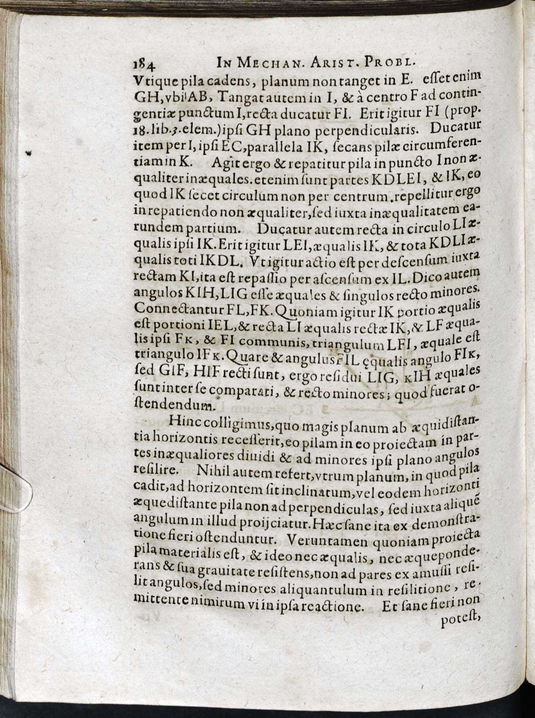 184 IN MECHAN. ARIST. PROBL.
Vtique pila cadens, planum non tanget in E. esset enim
GH, vbi AB, Tangat autem in I, & à centro F ad contin-
gentiæ punctum I, recta ducatur FI. Erit igitur FI (prop.
18. lib. 3. elem.) ipsi GH plano perpendicularis. Ducatur
item per I, ipsi EC, parallela IK, secans pilæ circumferen-
tiam in K. Agit ergo & repatitur pila in puncto I non æ-
qualiter inæquales. etenim sunt partes KDLEI, & IK, eo
quod IK secet circulum non per centrum, repellitur ergo
in repatiendo non æqualiter, sed iuxta inæqualitatem ea-
rundem partium. Ducatur autem recta in circulo LI æ-
qualis ipsi IK. Erit igitur LEI, æqualis IK, & tota KDLI æ-
qualis toti IKDL. Vt igitur actio est per descensum iuxta
rectam KI, ita est repassio per ascensum ex IL. Dico autem
angulos KIH, LIG esse æquales & singulos recto minores.
Connectantur FL, FK. Quoniam igitur IK portio æqualis
est portioni IEL, & recta LI æqualis rectæ IK, & LF æqua-
lis ipsi FK, & FI communis, triangulum LFI, æquale est
triangulo IFK. Quare & angulus FIL ęqualis angulo FIK,
sed GIF, HIF recti sunt, ergo residui LIG, KIH æquales
sunt inter se comparati, & recto minores; quod fuerat o-
stendendum.
Hinc colligimus, quo magis planum ab æquidistan-
tia horizontis recesserit, eo pilam in eo proiectam in par-
tes inæqualiores diuidi & ad minores ipsi plano angulos
resilire. Nihil autem refert, vtrum planum, in quod pila
cadit, ad horizontem sit inclinatum, vel eodem horizonti
æquedistante pila non ad perpendiculas, sed iuxta aliquẽ
angulum in illud proijciatur. Hæc sane ita ex demonstra-
tione fieri ostenduntur. Veruntamen quoniam proiecta
pila materialis est, & ideo nec æqualis, nec æqueponde-
rans & sua grauitate resistens, non ad pares ex amussi resi-
lit angulos, sed minores aliquantulum in resilitione, re-
mittente nimirum vi in ipsa reactione. Et sane fieri non
potest,